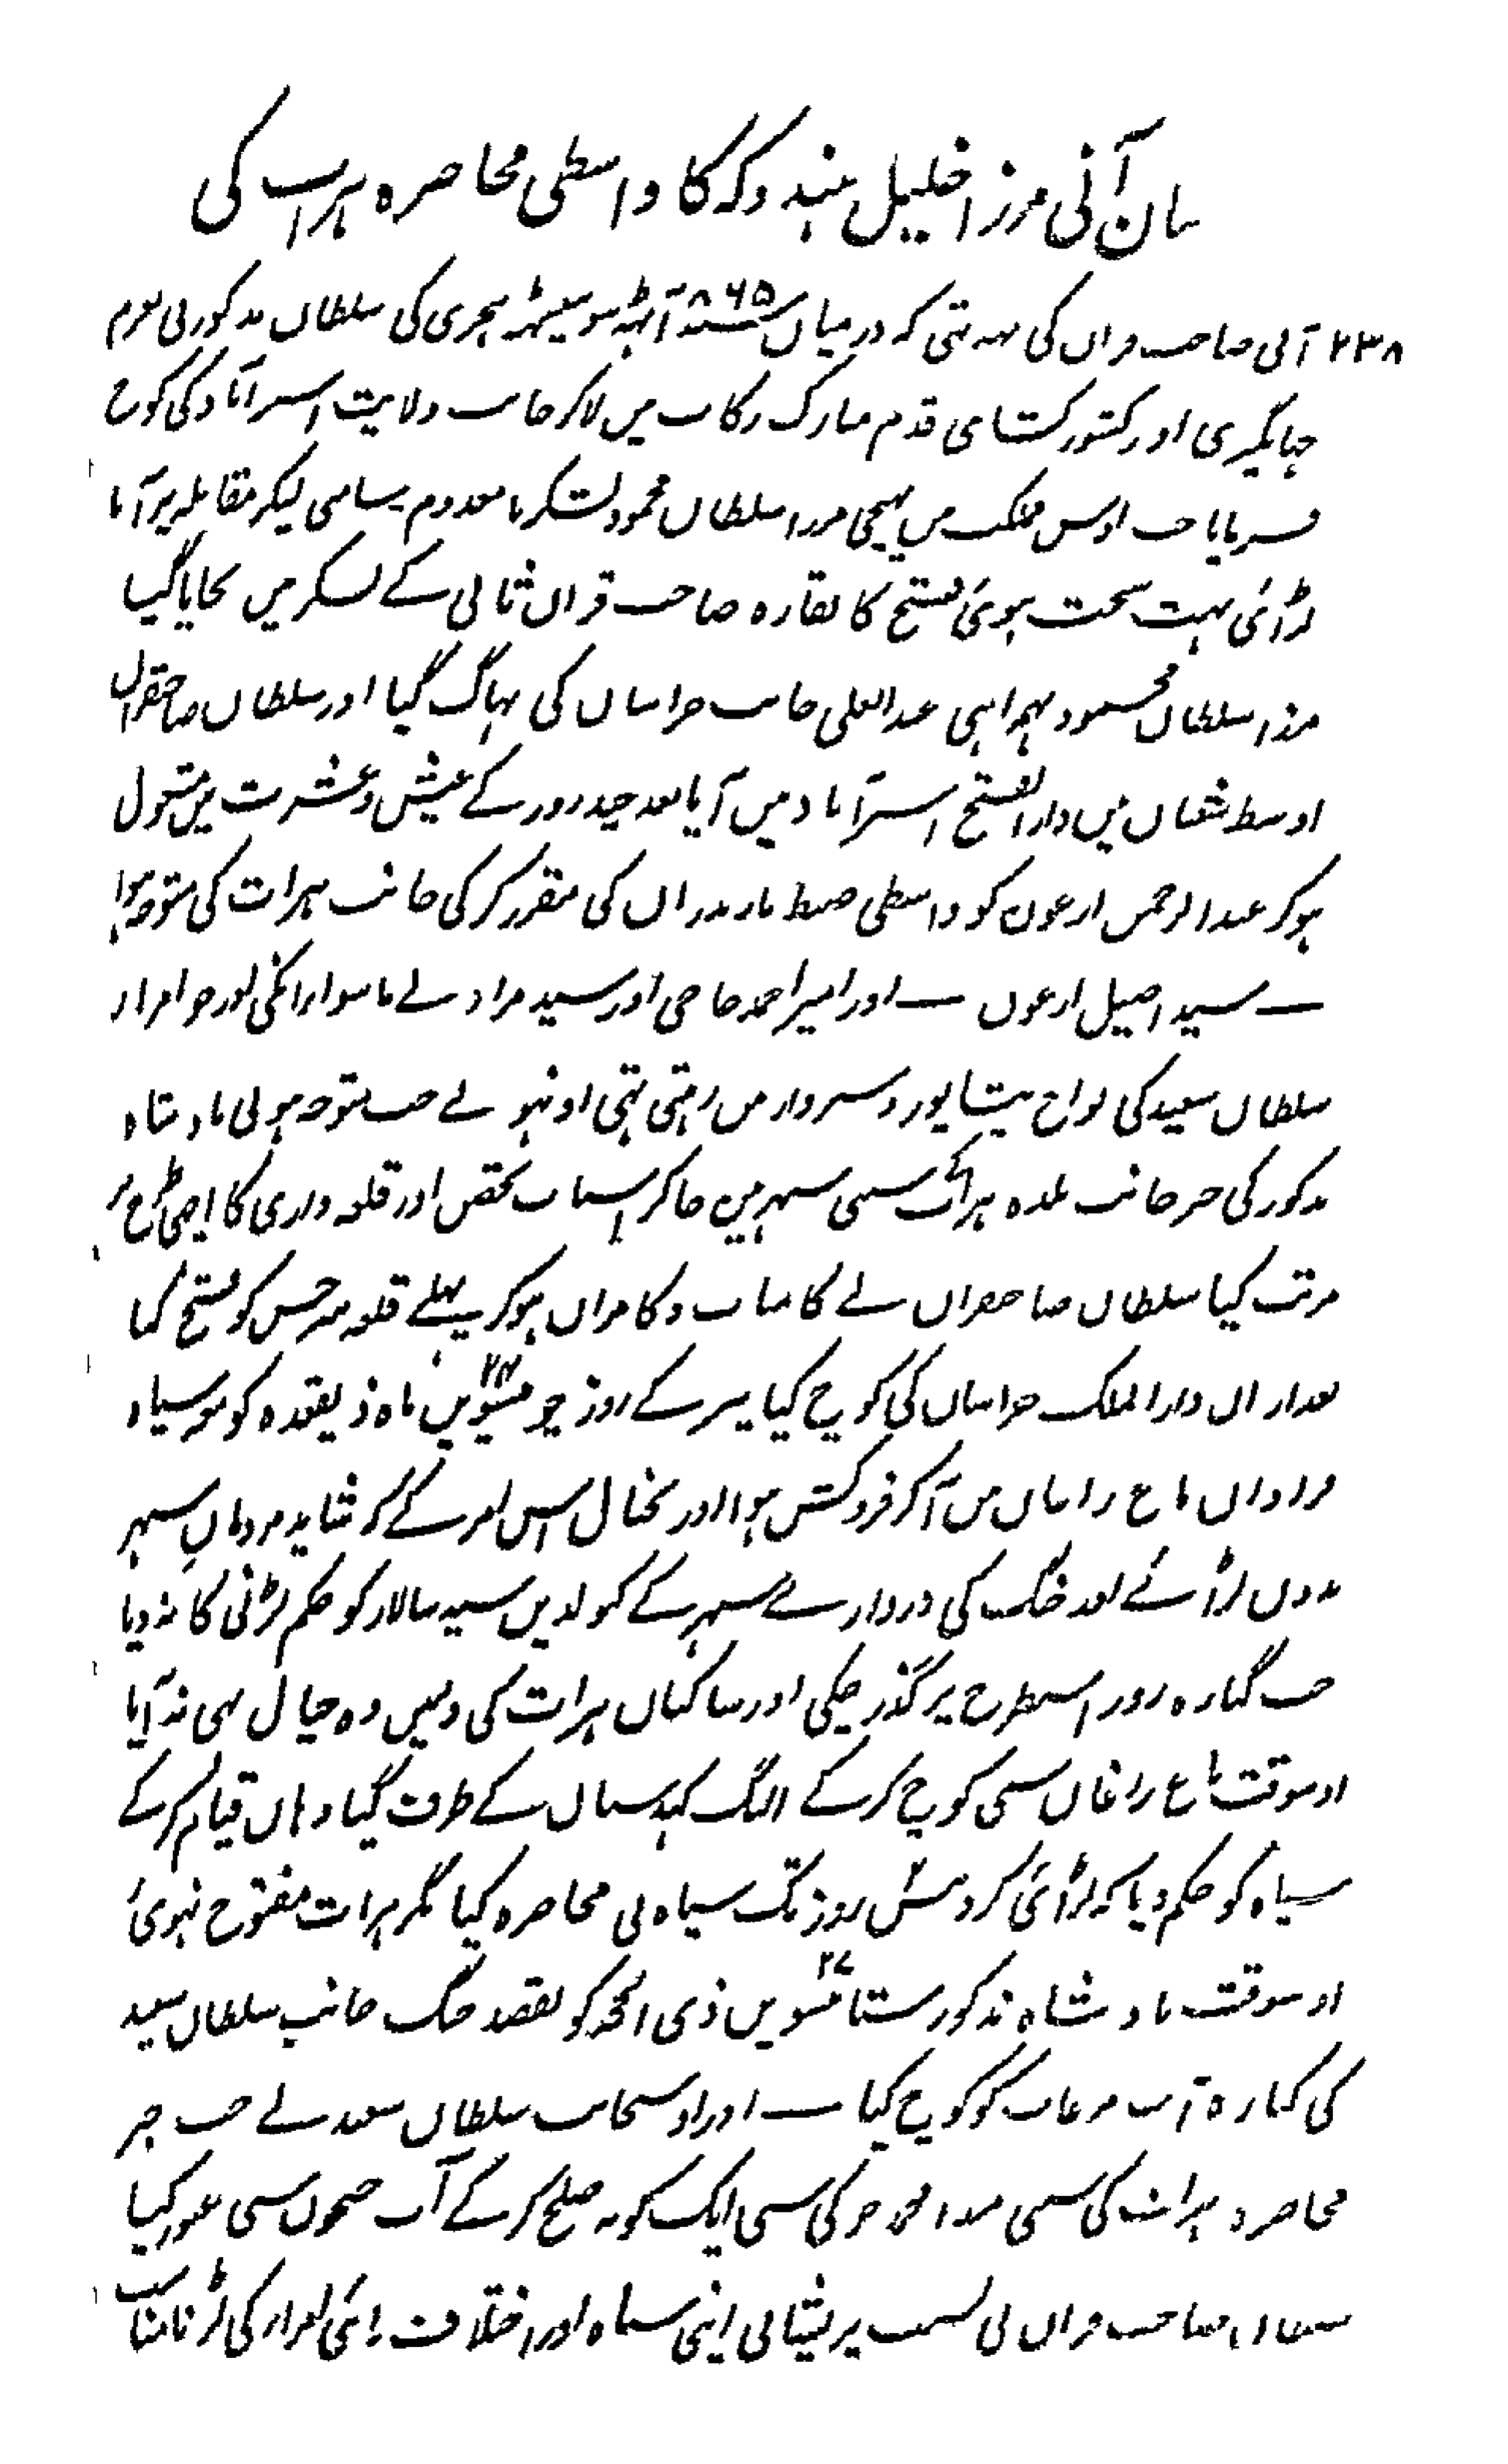 بیان آنی مرزا خلیل ہندوکہ کا واسطی محاصرہ ہرات کی
۲۳۸ آنی صاحب قران کی یہہ تہی کہ درمیان ۸۶۵ سنہ آٹہہ سو پینسٹہہ ہجری کی سلطان مذکور نی عزم
جہانگیری اور کشور کشای قدم مبارک رکاب میں لاکر جانب ولایت استرآباد کی کوچ
فرمایا جب اوس مملکت میں پہنچی مرزا سلطان محمود لشکر نامعدود سامی لیکر مقابلہ پر آیا
لڑائی بہت سخت ہوئی فتح کا نقارہ صاحب قران ثانی کے لشکر میں بجایا گیا
مرزا سلطان محمود ہمراہی عبدالعلی جانب خراسان کی بہاگ گیا اور سلطان صاحقران
اوسط شعبان میں دار الفتح استرآباد میں آیا بعد چند روز کے عیش و عشرت میں مشغول
ہوکر عبدالرحمن ارغون کو واسطی ضبط مازندران کی مقرر کر کی جانب ہرات کی متوجہ ہوا
سید اصیل ارغون اور امیر احمد حاجی اور سید مراد نے ماسوا انکی اور جو امراء
سلطان سعید کی نواح نیشاپور و سبزوار میں رہتی تہی اونہو نے جب متوجہ ہونی بادشاہ
مذکور کی خبر جانب بلدہ ہرات سی شہر میں جاکر اسباب تحصن اور قلعہ داری کا اچہی طرح پر
مرتب کیا سلطان صاحقران نے کامیاب و کامران ہوکر پہلے قلعہ سرخس کو فتح کیا
بعد ازان دار الملک خراسان کی کوچ کیا پیر کے روز چوبیسویں ۲۴ ماہ ذیقعدہ کو مع سپاہ
فراوان باغ زاغان میں آکر فروکش ہوا اور بخیال اس امر کے کہ شاید مردمان شہر
بدون لڑائے اور جنگ کی دروازے شہر کے کھولدیں سپہ سالار کو حکم لڑنی کا نہ دیا
جب گیارہ روز اسطرح پر گذر چکی اور ساکنان ہرات کی دلمیں وہ خیال بہی نہ آیا
اوسوقت باغ زاغان سی کوچ کر کے النگ کہدستان کے طرف گیا وہاں قیام کر کے
سپاہ کو حکم دیا کہ لڑائی کرو بیس روز تک سپاہ نی محاصرہ کیا مگر ہرات مفتوح نہوئی
اوسوقت بادشاہ مذکور ستائیسویں ۲۷ ذی الحجہ کو بقصد جنگ جانب سلطان سعید
کی کنارہ آب مرغاب کو کوچ کیا اور اوسجانب سلطان سعید نے جب خبر
محاصرہ ہرات کی سنی مرزا محمد جوکی سی ایک گونہ صلح کر کے آب جیحون سی عبور کیا
سلطان صاحب قران نی بسبب پریشانی اپنی سپاہ اور اختلاف رائی امراء کی لڑنا مناسب